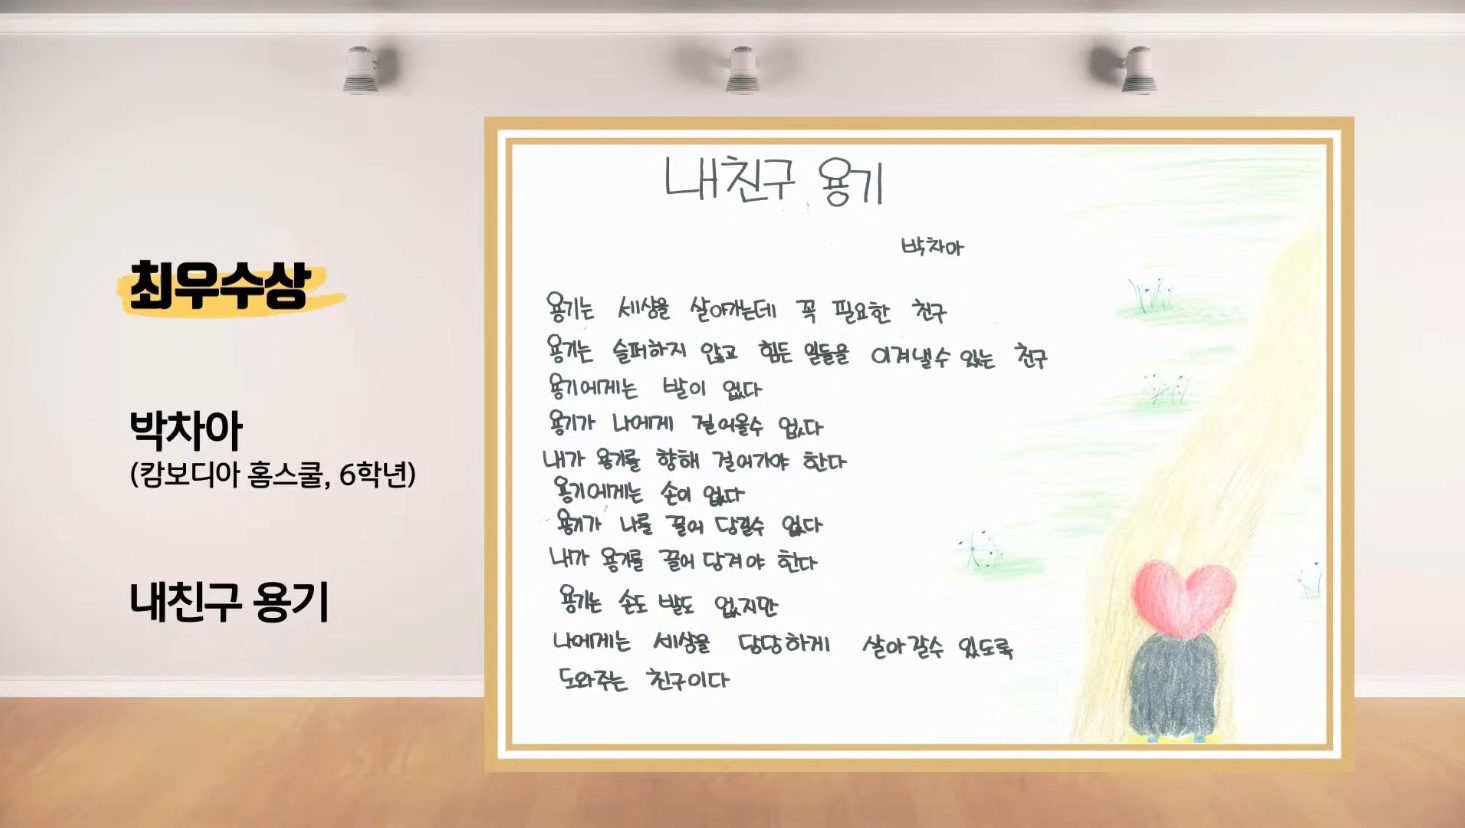 최우수상
박차아
(캄보디아 홈스쿨, 6학년)
내친구 용기
내친구 용기
박차아
용기는 세상을 살아가는데 꼭 필요한 친구
용기는 슬퍼하지 않고 힘든 일들을 이겨낼수 있는 친구
용기에게는 발이 없다
용기가 나에게 걸어올수 없다
내가 용기를 향해 걸어가야 한다
용기에게는 손이 없다
용기가 나를 끌어 당길수 없다
내가 용기를 끌어 당겨야 한다
용기는 손도 발도 없지만
나에게는 세상을 당당하게 살아갈수 있도록
도와주는 친구이다